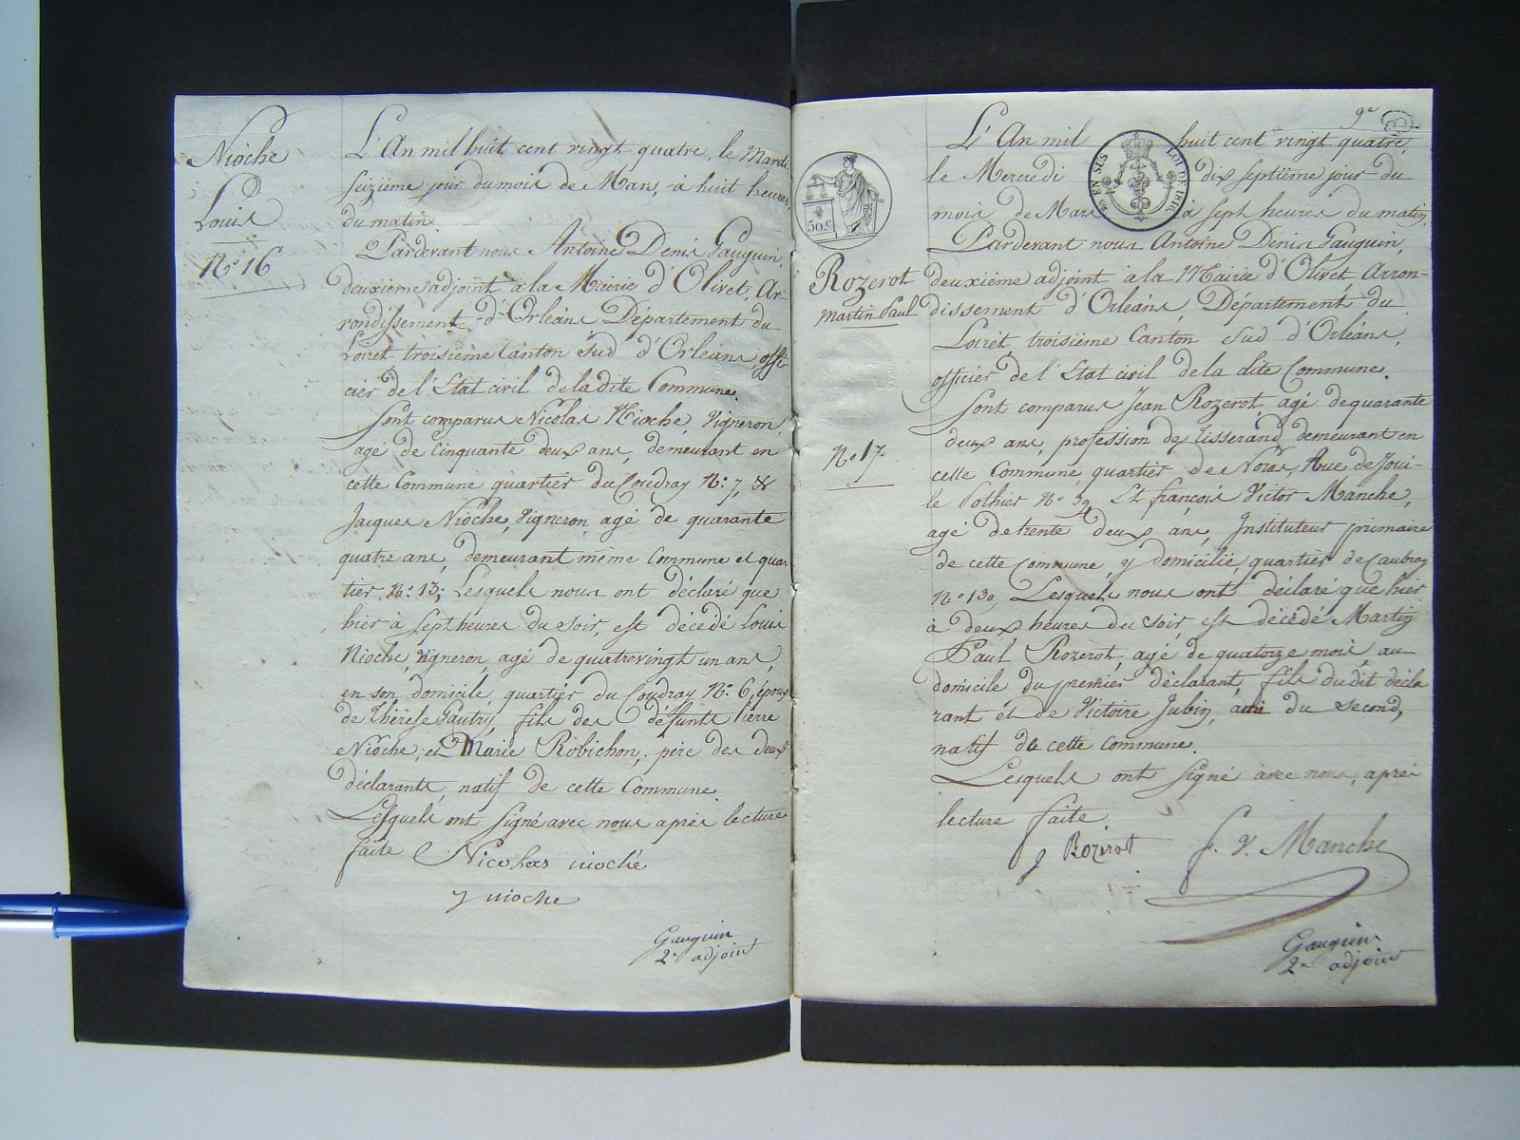 Nioche
Louis
N.° 16
L'An mil huit cent vingt quatre, le Mardi
seizième jour du mois de Mars, à huit heures
du matin.
Pardevant nous Antoine Denis Gauguin,
deuxième adjoint à la Mairie d'Olivet, Ar-
rondissement d'Orléans Département du
Loiret troisième Canton Sud d'Orléans, offi-
cier de l'Etat civil de la dite Commune.
Sont comparus Nicolas Nioche, Vigneron,
agé de Cinquante deux ans, demeurant en
cette Commune quartier du Coudray N.° 7, &
Jacques Nioche, Vigneron, agé de quarante
quatre ans, demeurant même commune et quar
tier, N.° 13; Lesquels nous ont déclaré que
hier à sept heures du soir, est décédé Louis
Nioche, vigneron, agé de quatrevingt un ans,
en son domicile, quartier du Coudray N.° 6, époux
de Thérèse Gautry, fils des défunts Pierre
Nioche, et Marie Robichon, père des deux
déclarants, natif de cette Commune.
Lesquels ont signé avec nous après lecture
faite
Nicolas nioche
J nioche
Gauguin
2e adjoint
9e
50 c
Rozerot
Martin Paul
N.° 17.
L'An mil huit cent vingt quatre,
le Mercredi dix septième jour du
mois de Mars à sept heures du matin,
Pardevant nous Antoine Denis Gauguin,
deuxième adjoint à la Mairie d'Olivet, Arron=
dissement d'Orléans, Département du
Loiret, troisième Canton Sud d'Orléans,
officier de l'Etat civil de la dite Commune.
Sont comparus Jean Rozerot, agé de quarante
deux ans, profession de Tisserand, demeurant en
cette Commune, quartier de Rue de
le Pothier N.° & françois Victor Manche,
agé de trente deux ans, Instituteur primaire
de cette Commune, y domicilié, quartier de
N.° 130, Lesquels nous ont déclaré que hier
à deux heures du soir, est décédé Martin
Paul Rozerot, agé de quatorze mois, au
domicile du premier déclarant, fils du dit décla
rant et de Victoire Jubin, ami du second,
natif de cette commune.
Lesquels ont signé avec nous, après
lecture faite
J Rozerot
f. V. Manche
Gauguin
2e adjoint